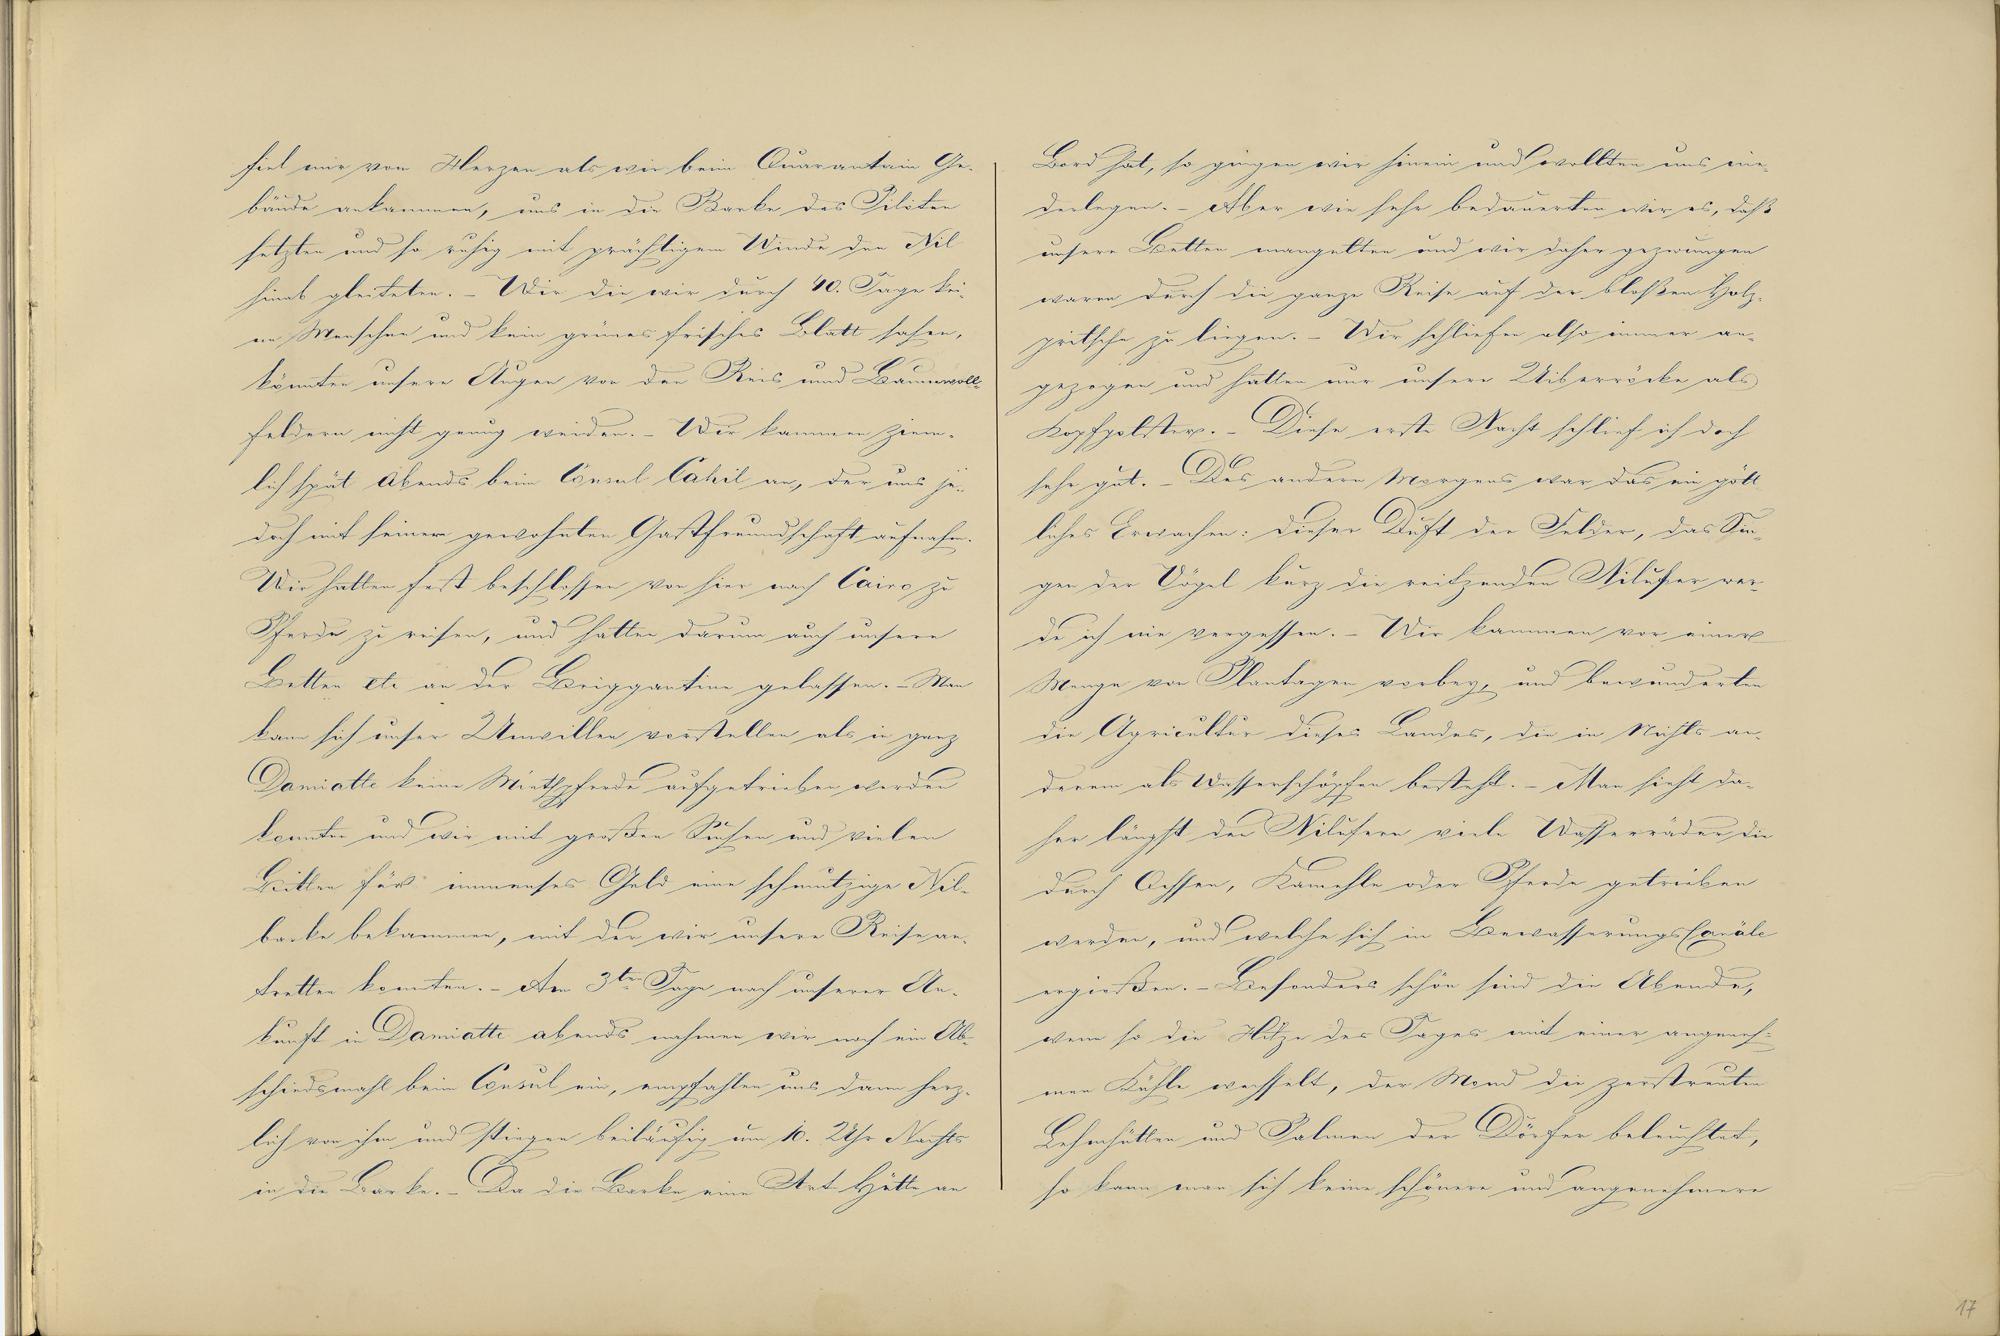 fiel mir vom Herzen als wir beim Quarantain Ge-
bäude ankammen, uns in die Barke des Piloten
setzten und so ruhig mit prächtigem Winde den Nil
hinab gleiteten. – Wir die wir durch 40. Tage kei-
ne Menschen und kein grünes frisches Blatt sahen,
könnten unsere Augen von den Reis und Baumwoll-
feldern nicht genug weiden. – Wir kammen ziem-
lich spät Abends beim Consul Cahil an, der uns je-
doch mit seiner gewohnten Gastfreundschaft aufnahm.
Wir hatten fest beschlossen von hier nach Cairo zu
Pferde zu reisen, und hatten darum auch unsere
Betten etc an der Briggantine gelassen. – Man
kann sich unser Unwillen vorstellen als in ganz
Damiatte keine Miethpferde aufgetrieben werden
konnten und wir mit großen Suchen und vielen
Bitten für immenses Geld eine schmutzige Nil-
barke bekammen, mit der wir unsere Reise an-
tretten konnten. – Am 3ten Tage nach unserer An-
kunft in Damiatte abends nahmen wir noch ein Ab-
schiedsmahl beim Consul ein, empfahlen uns dann herz-
lich von ihm und stiegen beiläufig um 10. Uhr Nachts
in die Barke. – Da die Barke eine Art Hütte an
Bord hat, so gingen wir hinein und wollten uns nie-
derlegen. – Aber wie sehr bedauerten wir es, daß
unsere Betten mangelten und wir daher gezwungen
waren durch die ganze Reise auf der bloßen Holz-
pritsche zu liegen. – Wir schliefen also immer an-
gezogen und hatten nur unsere Uiberröcke als
Kopfpolster. – Diese erste Nacht schlief ich doch
sehr gut. – Des andern Morgens war das ein gött
liches Erwachen: dieser Duft der Felder, das Sin-
gen der Vögel kurz die reitzenden Nilufer wer-
de ich nie vergessen. – Wir kammen vor einer
Menge von Plantagen vorbey, und bewunderten
die Agricultur dieses Landes, die in Nichts an-
derem als Wasserschöpfen besteht. – Man sieht da-
her längst den Nilufern viele Wasserräder die
durch Ochsen, Kamehle oder Pferde getrieben
werden, und welche sich in BewasserungsCanäle
ergießen. – Besonders schön sind die Abende,
wenn so die Hitze des Tages mit einer angeneh-
men Kühle wechselt, der Mond die zerstreuten
Lehmhütten und Palmen der Dörfer beleuchtet,
so kann man sich keine schönere und angenehmere
17